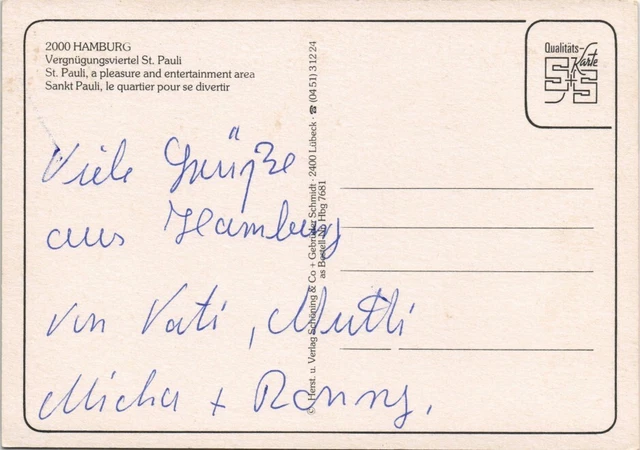 2000 HAMBURG
Vergnügungsviertel St. Pauli
St. Pauli, a pleasure and entertainment area
Sankt Pauli, le quartier pour se divertir
Qualitäts-
Karte
S+S
Viele Grüße
aus Hamburg
von Vati, Mutti
Micha + Ronny.
© Herst. u. Verlag Schöning & Co + Gebrüder Schmidt · 2400 Lübeck · ☎ (0451) 3 12 24
as Bestell-Nr. Hbg 7681